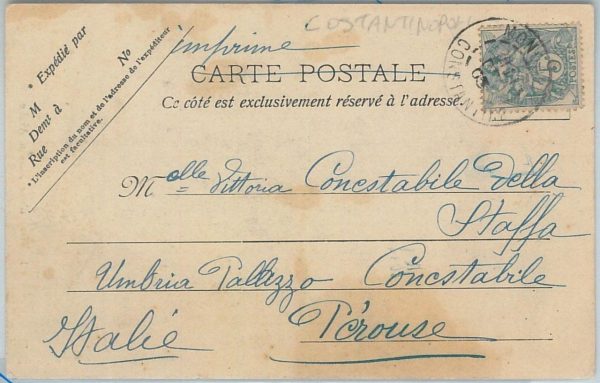 COSTANTINOPOLI
imprimé
CARTE POSTALE
Ce côté est exclusivement réservé à l'adresse.
* Expédié par
No
M
Demt à
Rue
* L'inscription du nom et de l'adresse de l'expéditeur
est facultative.
POSTES
Melle Vittoria Conestabile Della
Staffa
Umbria Palazzo Conestabile
Italie Pérouse